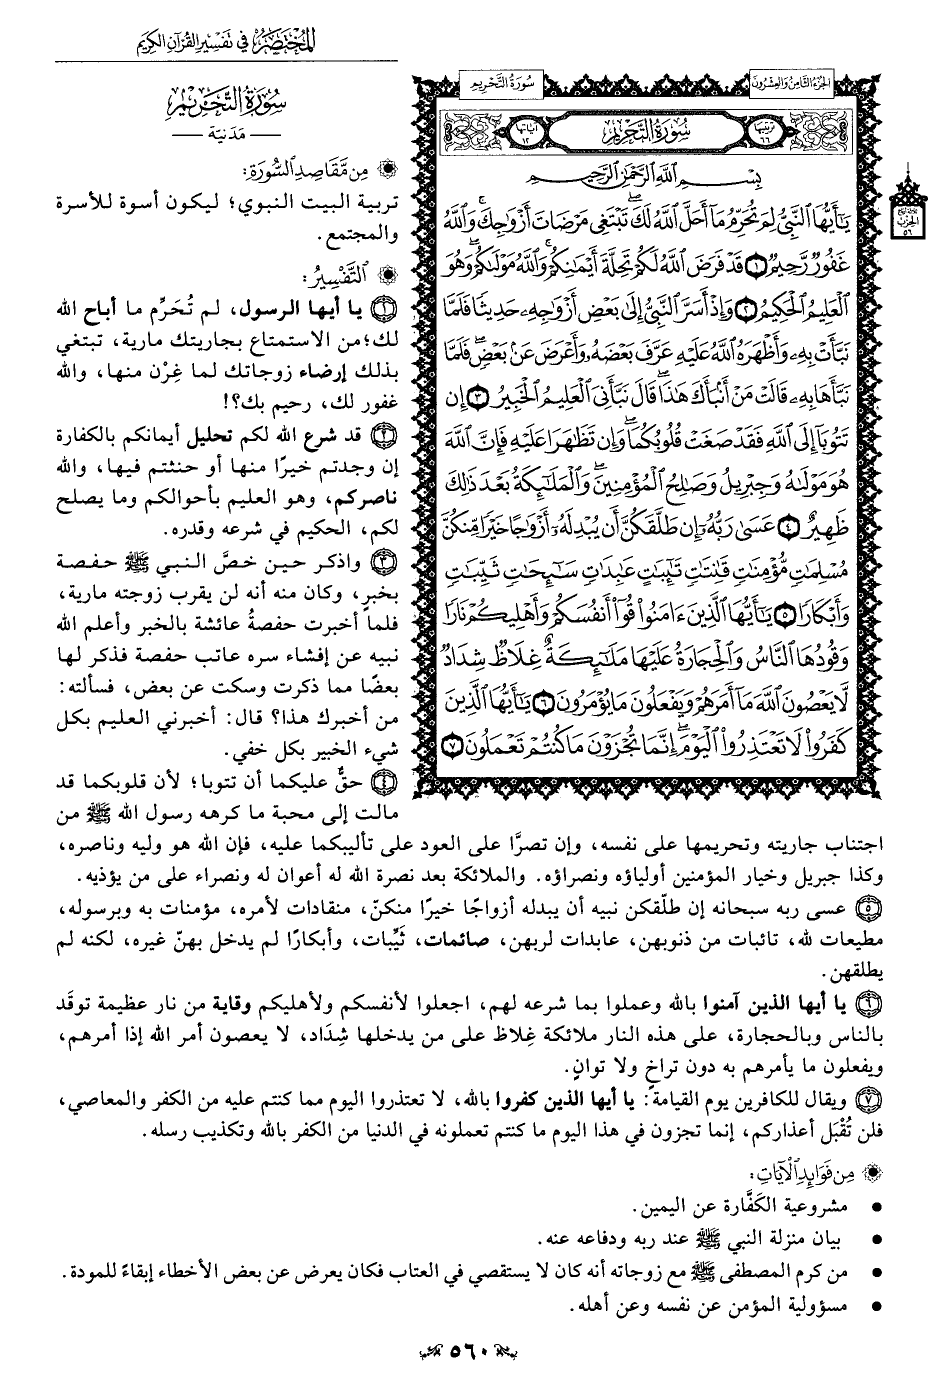 المختصر في تفسير القرآن الكريم
الجزء الثامن والعشرون
سورة التحريم
ترتيبها ٦٦
سورة التحريم
آياتها ١٢
بِسْمِ ٱللَّهِ ٱلرَّحْمَٰنِ ٱلرَّحِيمِ
يَٰٓأَيُّهَا ٱلنَّبِيُّ لِمَ تُحَرِّمُ مَآ أَحَلَّ ٱللَّهُ لَكَۖ تَبْتَغِي مَرْضَاتَ أَزْوَٰجِكَۚ وَٱللَّهُ
غَفُورٌ رَّحِيمٌ ١ قَدْ فَرَضَ ٱللَّهُ لَكُمْ تَحِلَّةَ أَيْمَٰنِكُمْۚ وَٱللَّهُ مَوْلَىٰكُمْۖ وَهُوَ
ٱلْعَلِيمُ ٱلْحَكِيمُ ٢ وَإِذْ أَسَرَّ ٱلنَّبِيُّ إِلَىٰ بَعْضِ أَزْوَٰجِهِۦ حَدِيثًا فَلَمَّا
نَبَّأَتْ بِهِۦ وَأَظْهَرَهُ ٱللَّهُ عَلَيْهِ عَرَّفَ بَعْضَهُۥ وَأَعْرَضَ عَنۢ بَعْضٍۖ فَلَمَّا
نَبَّأَهَا بِهِۦ قَالَتْ مَنْ أَنۢبَأَكَ هَٰذَاۖ قَالَ نَبَّأَنِيَ ٱلْعَلِيمُ ٱلْخَبِيرُ ٣ إِن
تَتُوبَآ إِلَى ٱللَّهِ فَقَدْ صَغَتْ قُلُوبُكُمَاۖ وَإِن تَظَٰهَرَا عَلَيْهِ فَإِنَّ ٱللَّهَ
هُوَ مَوْلَىٰهُ وَجِبْرِيلُ وَصَٰلِحُ ٱلْمُؤْمِنِينَۖ وَٱلْمَلَٰٓئِكَةُ بَعْدَ ذَٰلِكَ
ظَهِيرٌ ٤ عَسَىٰ رَبُّهُۥٓ إِن طَلَّقَكُنَّ أَن يُبْدِلَهُۥٓ أَزْوَٰجًا خَيْرًا مِّنكُنَّ
مُسْلِمَٰتٍ مُّؤْمِنَٰتٍ قَٰنِتَٰتٍ تَٰٓئِبَٰتٍ عَٰبِدَٰتٍ سَٰٓئِحَٰتٍ ثَيِّبَٰتٍ
وَأَبْكَارًا ٥ يَٰٓأَيُّهَا ٱلَّذِينَ ءَامَنُوا۟ قُوٓا۟ أَنفُسَكُمْ وَأَهْلِيكُمْ نَارًا
وَقُودُهَا ٱلنَّاسُ وَٱلْحِجَارَةُ عَلَيْهَا مَلَٰٓئِكَةٌ غِلَاظٌ شِدَادٌ
لَّا يَعْصُونَ ٱللَّهَ مَآ أَمَرَهُمْ وَيَفْعَلُونَ مَا يُؤْمَرُونَ ٦ يَٰٓأَيُّهَا ٱلَّذِينَ
كَفَرُوا۟ لَا تَعْتَذِرُوا۟ ٱلْيَوْمَۖ إِنَّمَا تُجْزَوْنَ مَا كُنتُمْ تَعْمَلُونَ ٧
الحزب ٥٦
سورة التحريم
— مدنية —
من مقاصد السورة:
تربية البيت النبوي؛ ليكون أسوة للأسرة
والمجتمع.
التفسير:
١ يا أيها الرسول، لم تُحَرِّم ما أباح الله
لك؛ من الاستمتاع بجاريتك مارية، تبتغي
بذلك إرضاء زوجاتك لما غِرْن منها، والله
غفور لك، رحيم بك؟!
٢ قد شرع الله لكم تحليل أيمانكم بالكفارة
إن وجدتم خيرًا منها أو حنثتم فيها، والله
ناصركم، وهو العليم بأحوالكم وما يصلح
لكم، الحكيم في شرعه وقدره.
٣ واذكر حين خصَّ النبي ﷺ حفصة
بخبرٍ، وكان منه أنه لن يقرب زوجته مارية،
فلما أخبرت حفصةُ عائشة بالخبر وأعلم الله
نبيه عن إفشاء سره عاتب حفصة فذكر لها
بعضًا مما ذكرت وسكت عن بعض، فسألته:
من أخبرك هذا؟ قال: أخبرني العليم بكل
شيء الخبير بكل خفي.
٤ حقٌّ عليكما أن تتوبا؛ لأن قلوبكما قد
مالت إلى محبة ما كرهه رسول الله ﷺ من
اجتناب جاريته وتحريمها على نفسه، وإن تصرَّا على العود على تأليبكما عليه، فإن الله هو وليه وناصره،
وكذا جبريل وخيار المؤمنين أولياؤه ونصراؤه. والملائكة بعد نصرة الله له أعوان له ونصراء على من يؤذيه.
٥ عسى ربه سبحانه إن طلّقكن نبيه أن يبدله أزواجًا خيرًا منكنّ، منقادات لأمره، مؤمنات به وبرسوله،
مطيعات لله، تائبات من ذنوبهن، عابدات لربهن، صائمات، ثَيِّبات، وأبكارًا لم يدخل بهنّ غيره، لكنه لم
يطلقهن.
٦ يا أيها الذين آمنوا بالله وعملوا بما شرعه لهم، اجعلوا لأنفسكم ولأهليكم وقاية من نار عظيمة توقَد
بالناس وبالحجارة، على هذه النار ملائكة غِلاظ على من يدخلها شِدَاد، لا يعصون أمر الله إذا أمرهم،
ويفعلون ما يأمرهم به دون تراخٍ ولا توانٍ.
٧ ويقال للكافرين يوم القيامة: يا أيها الذين كفروا بالله، لا تعتذروا اليوم مما كنتم عليه من الكفر والمعاصي،
فلن تُقْبَل أعذاركم، إنما تجزون في هذا اليوم ما كنتم تعملونه في الدنيا من الكفر بالله وتكذيب رسله.
من فوائد الآيات:
• مشروعية الكَفَّارة عن اليمين.
• بيان منزلة النبي ﷺ عند ربه ودفاعه عنه.
• من كرم المصطفى ﷺ مع زوجاته أنه كان لا يستقصي في العتاب فكان يعرض عن بعض الأخطاء إبقاءً للمودة.
• مسؤولية المؤمن عن نفسه وعن أهله.
٥٦٠